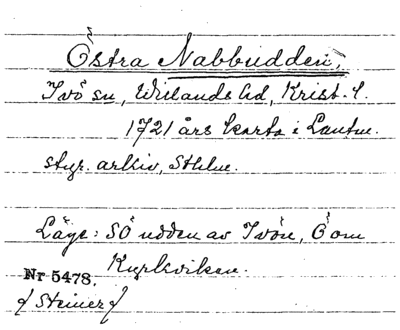 Östra Nabbudden,
Ivö sn, Willands hd, Krist. l.
1721 års karta i Lantm.
styr. arkiv, Sthlm.
Läge: SÖ udden av Ivön, Ö om
Kyrkviken.
Nr 5478.
/Steiner/